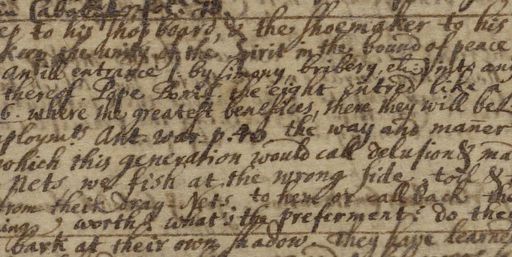 to his shop board, & the shoemaker to his
keep the unity of the Spirit in the bound of peace
An ill entrance 1. by Simony, bribery, etc: into any
thereof Pope Bonif. the eight entred like a
6. where the greatest benefices, there they will be
ploymt. Ant. war. p. 40 the way and mañer
which this generation would call delusion & ma
Nets, we fish at the wrong side, toil &
from their dray Nets. to hem or call back the
worth & what is the preferment? do they
bark at their own shadow. They have learned